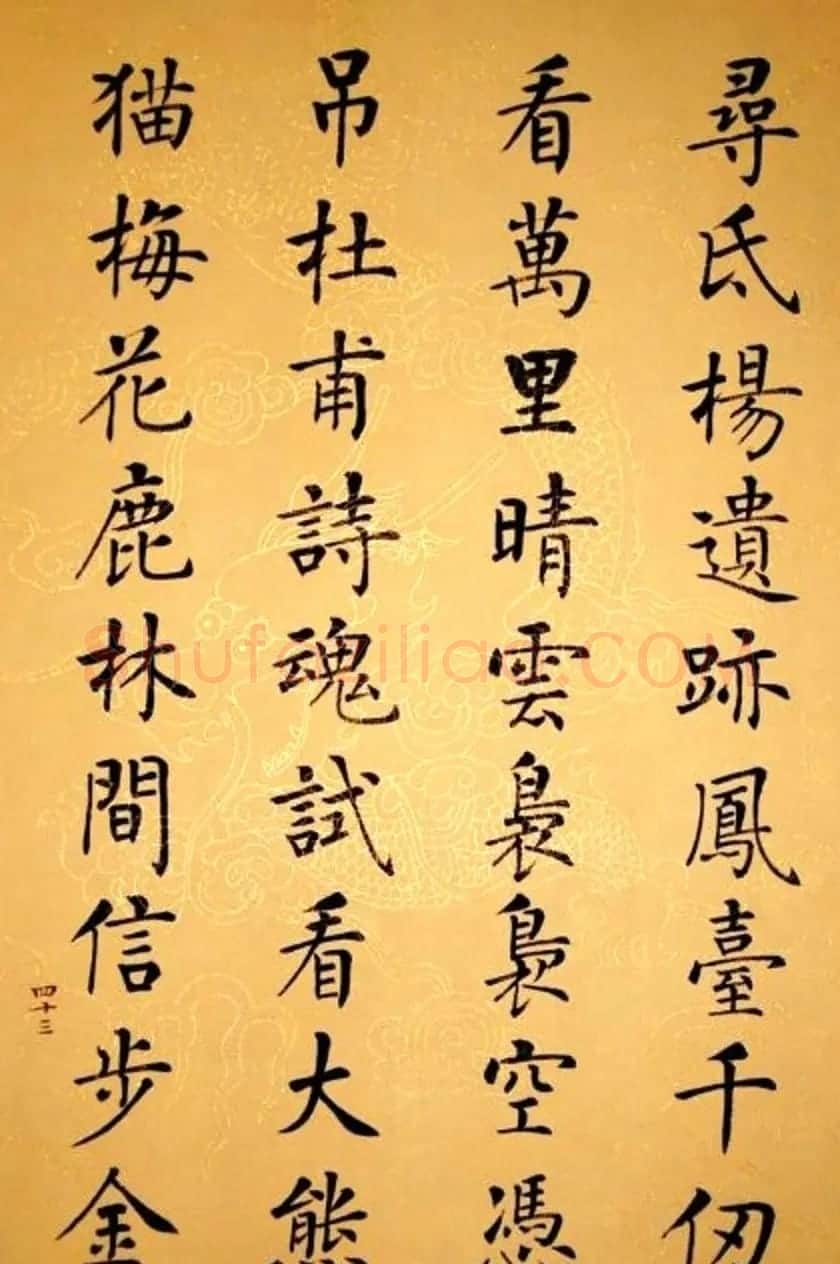 尋氐楊遺跡鳳臺千仞
看萬里晴雲裊裊空憑
吊杜甫詩魂試看大熊
猫梅花鹿林間信步金
四十三
Shufaziliao.COM